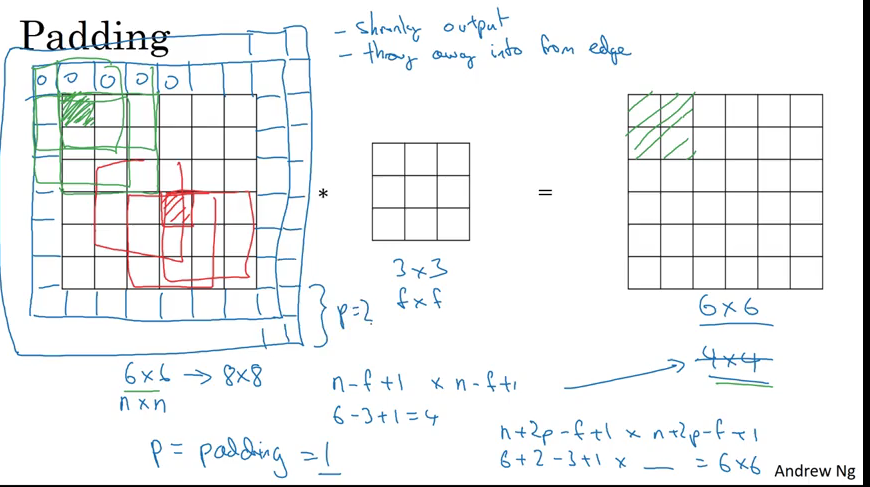 Padding
- shrinky output
- throw away info from edge
0 0 0 0 0
*
=
3 × 3
f × f
6 × 6
4 × 4
p = 2
6 × 6 → 8 × 8
n × n
n - f + 1 × n - f + 1
6 - 3 + 1 = 4
p = padding = 1
n + 2p - f + 1 × n + 2p - f + 1
6 + 2 - 3 + 1 × __ = 6 × 6
Andrew Ng